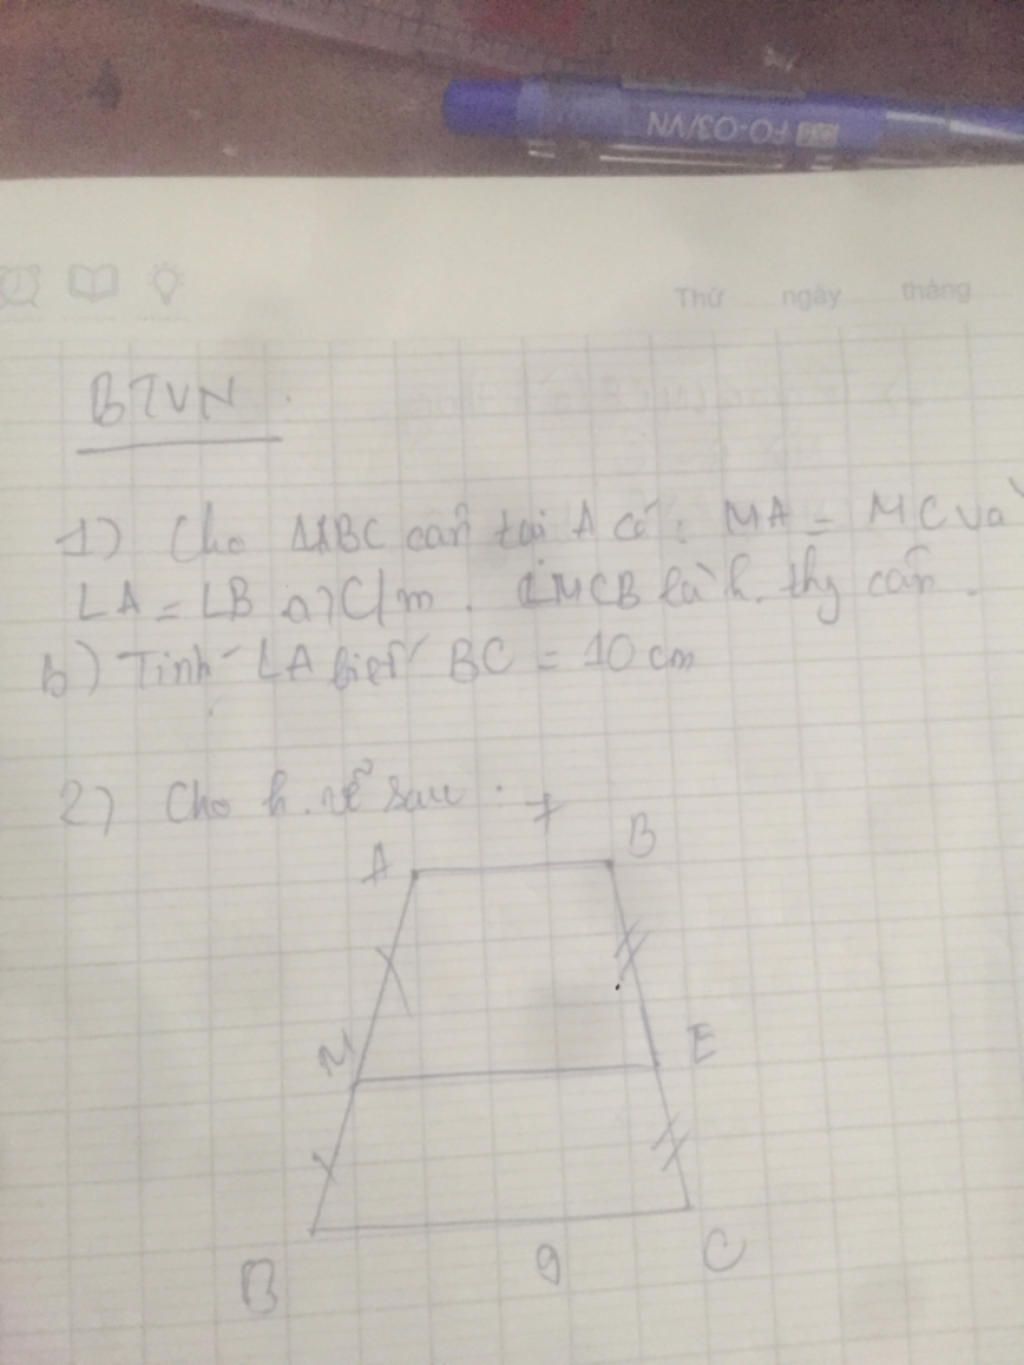 FO-03/VN
Thứ ngày tháng
BTVN
1) Cho ΔABC cân tại A có: MA = MC và
LA = LB a) C/m . LMCB là h. thg cân.
b) Tính LA biết BC = 10 cm
2) Cho h. vẽ sau :
7
A B
M E
D C
9